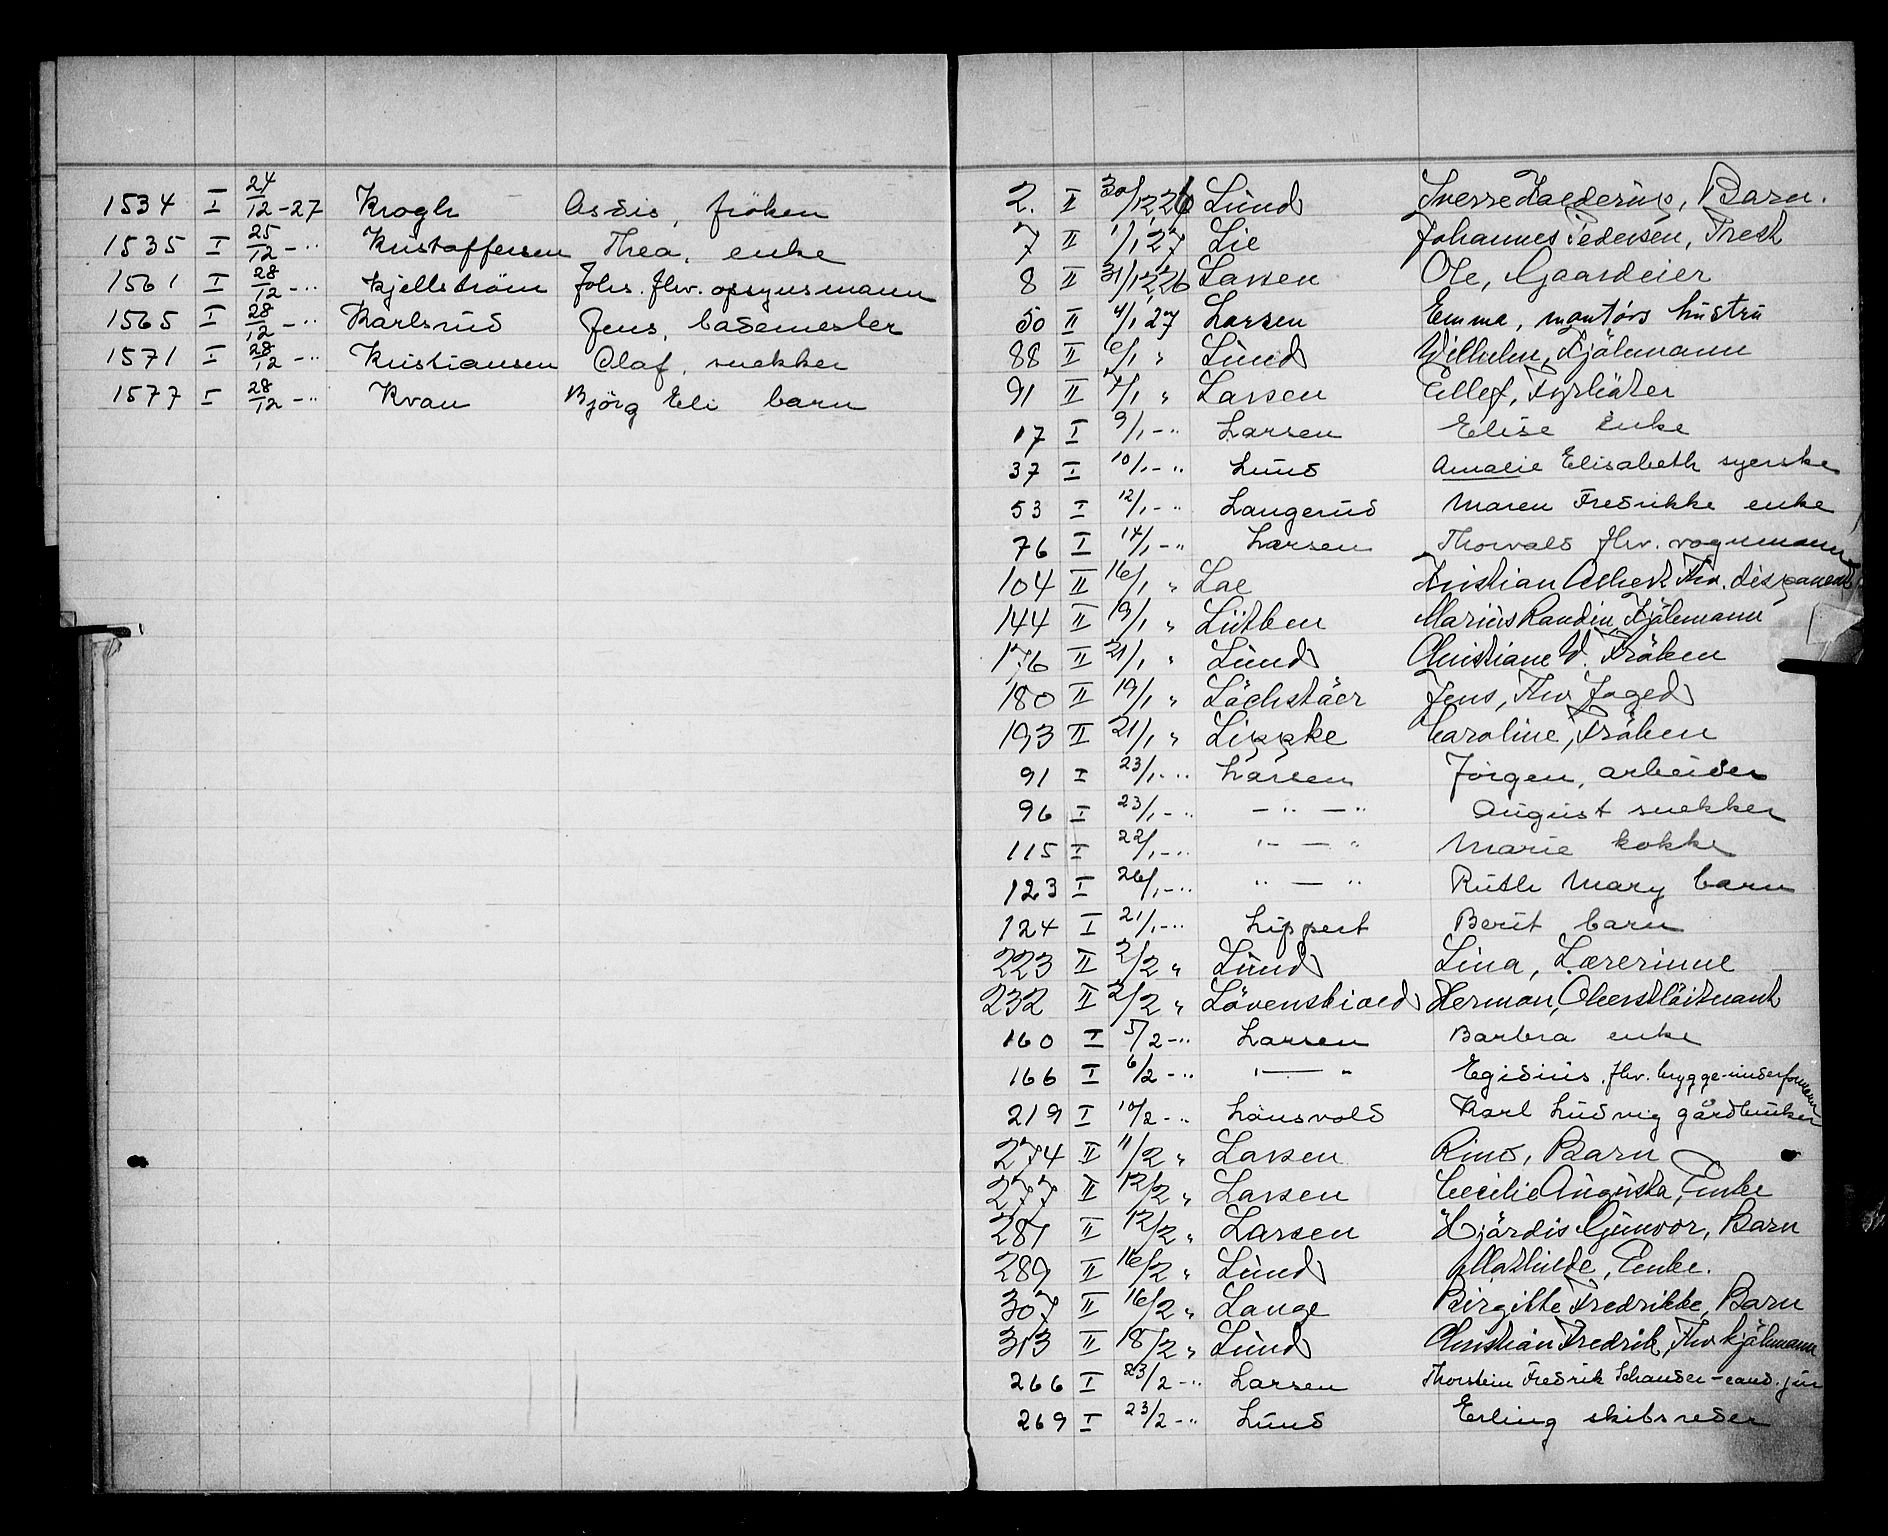 1534 I 24/12-27 Krogh Assis, fröken
1535 I 25/12-" Kristoffersen Thea, enke
1561 I 28/12-" Kjellström Johs. fhv. opsynsmann
1565 I 28/12-" Karlsrud Jens, basemester
1571 I 28/12-" Kristiansen Olaf, snekker
1577 I 28/12-" Kvan Björg Eli barn
2. II 30/12 26 Lund Sverre, Barn.
7 II 1/1 27 Lie Johannes Pedersen, Prest
8 II 31/12 26 Larsen Ole, Gaardeier
50 II 4/1 27 Larsen Emma, montörs hustru
88 II 6/1 " Lund Wilhelm, Kjöbmann
91 II 7/1 " Larsen Ellef, Fyrböter
17 I 9/1-" Larsen Elise enke
37 I 10/1-" Lund Amalie Elisabeth syerske
53 I 12/1-" Langerud Maren Fredrikke enke
76 I 14/1-" Larsen Thorvald fhv. vognmann
104 II 16/1 " Lae Kristian Albert Fhv. disponent
144 II 19/1 " Lütken Marius Randin, Kjöbmann
176 II 21/1 " Lund Christiane V. Fröken
180 II 19/1 " Löchstöer Jens, Fhv. Foged
193 II 21/1 " Lippke Caroline, Fröken
91 I 23/1-" Larsen Jörgen, arbeider
96 I 23/1-" -"-" August snekker
115 I 22/1-" "-" Marie kokke
123 I 26/1-" "-" Ruth Mary barn
124 I 21/1-" Lippert Berit barn
223 II 2/2 " Lund Lina, Lærerinne
232 II 2/2 " Lövenskiold Herman, Oberstlöitnant
160 I 5/2-" Larsen Barbra enke
166 I 6/2-" "-" Egidius. fhv. brygge-underformann
219 I 10/2-" Karl Ludvig gårdbruker
274 II 11/2 " Larsen Barn
277 II 12/2 " Larsen Cecilie Augusta, Enke
287 II 12/2 " Larsen Hjördis Gunvor, Barn
289 II 16/2 " Lund Mathilde, Enke.
307 II 16/2 " Lange Birgitte Fredrikke, Barn
313 II 18/2 " Lund Christian Fredrik, Fhv. kjöbmann
266 I 23/2-" Larsen Thorstein Fredrik Schander-cand. jur
269 I 23/2-" Lund Erling skibsreder